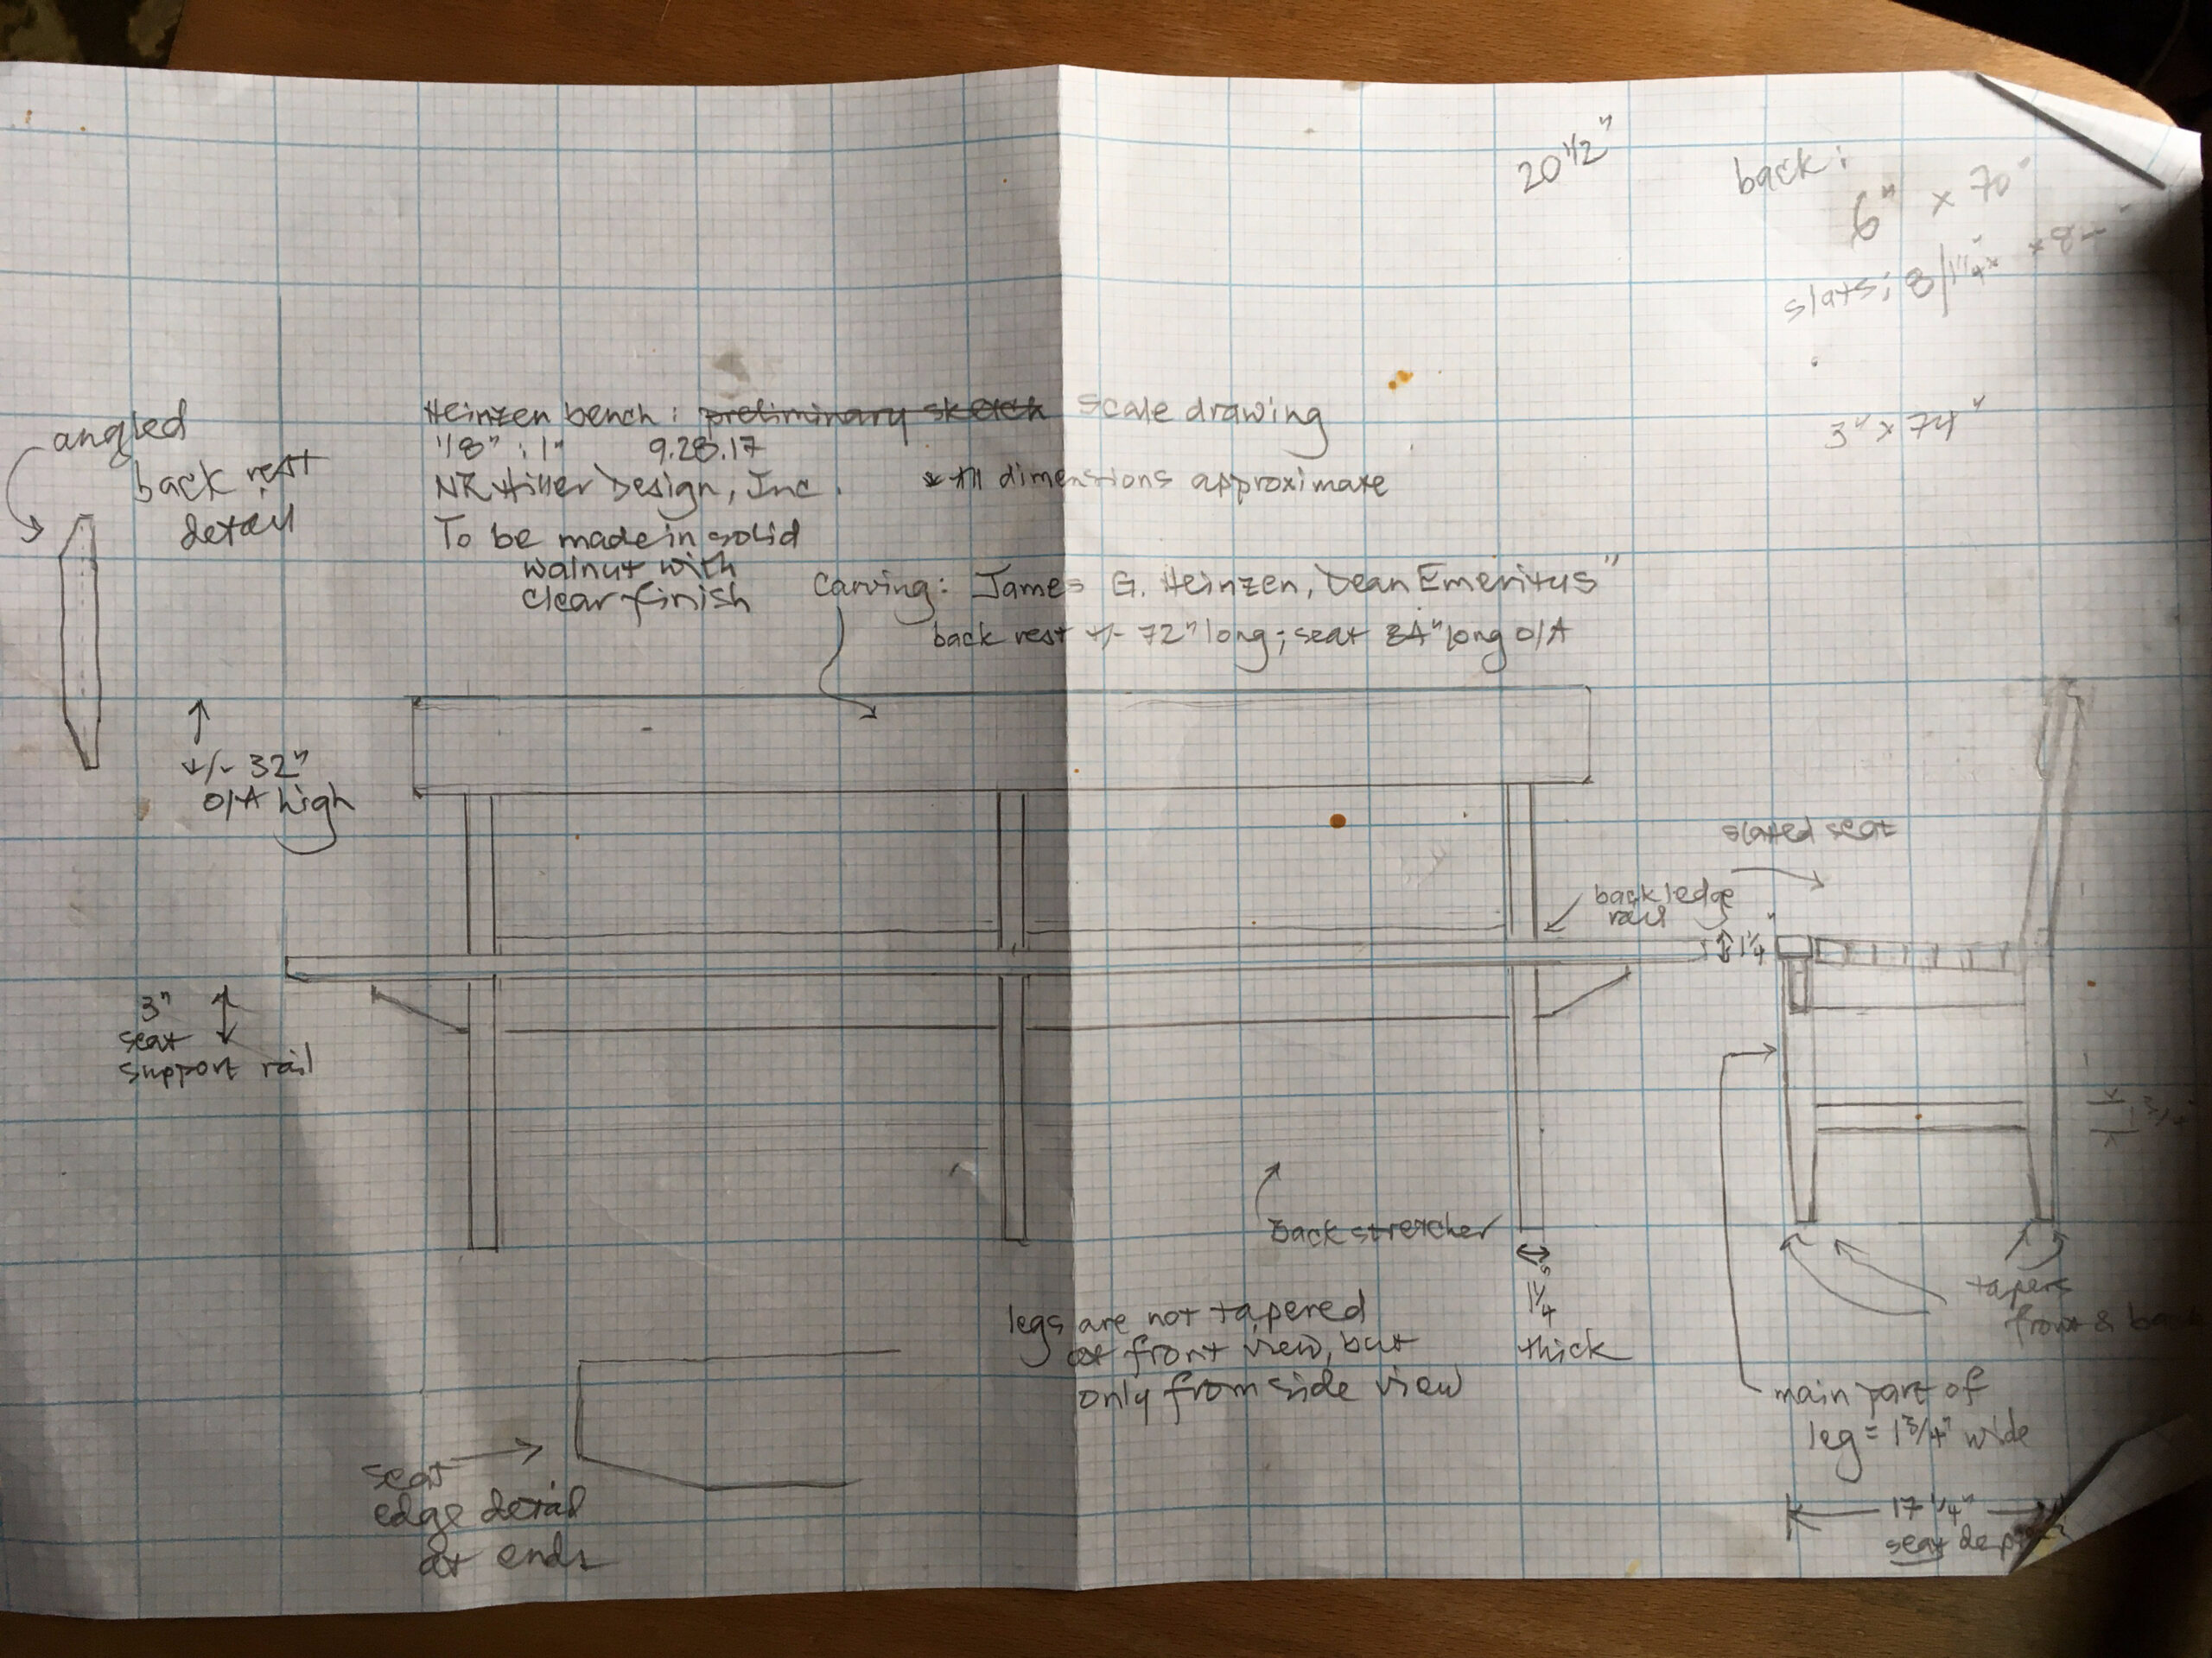 20 1/2"
back:
6" x 70"
slats: 8/1 1/4" x
3" x 74"
angled
back rest
detail
Heinzen bench: preliminary sketch scale drawing
1/8" : 1" 9.28.17
NR Hiller Design, Inc. * All dimensions approximate
To be made in solid
walnut with
clear finish
Carving: James G. Heinzen, Dean Emeritus"
back rest +/- 72" long; seat 84" long O/A
+/- 32"
O/A high
slated seat
back ledge
rail
1 1/4"
3"
seat
support rail
Back stretcher
1 1/4"
thick
legs are not tapered
at front view, but
only from side view
tapers
front &
main part of
leg = 1 3/4" wide
17 1/4"
seat
seat
edge detail
at ends